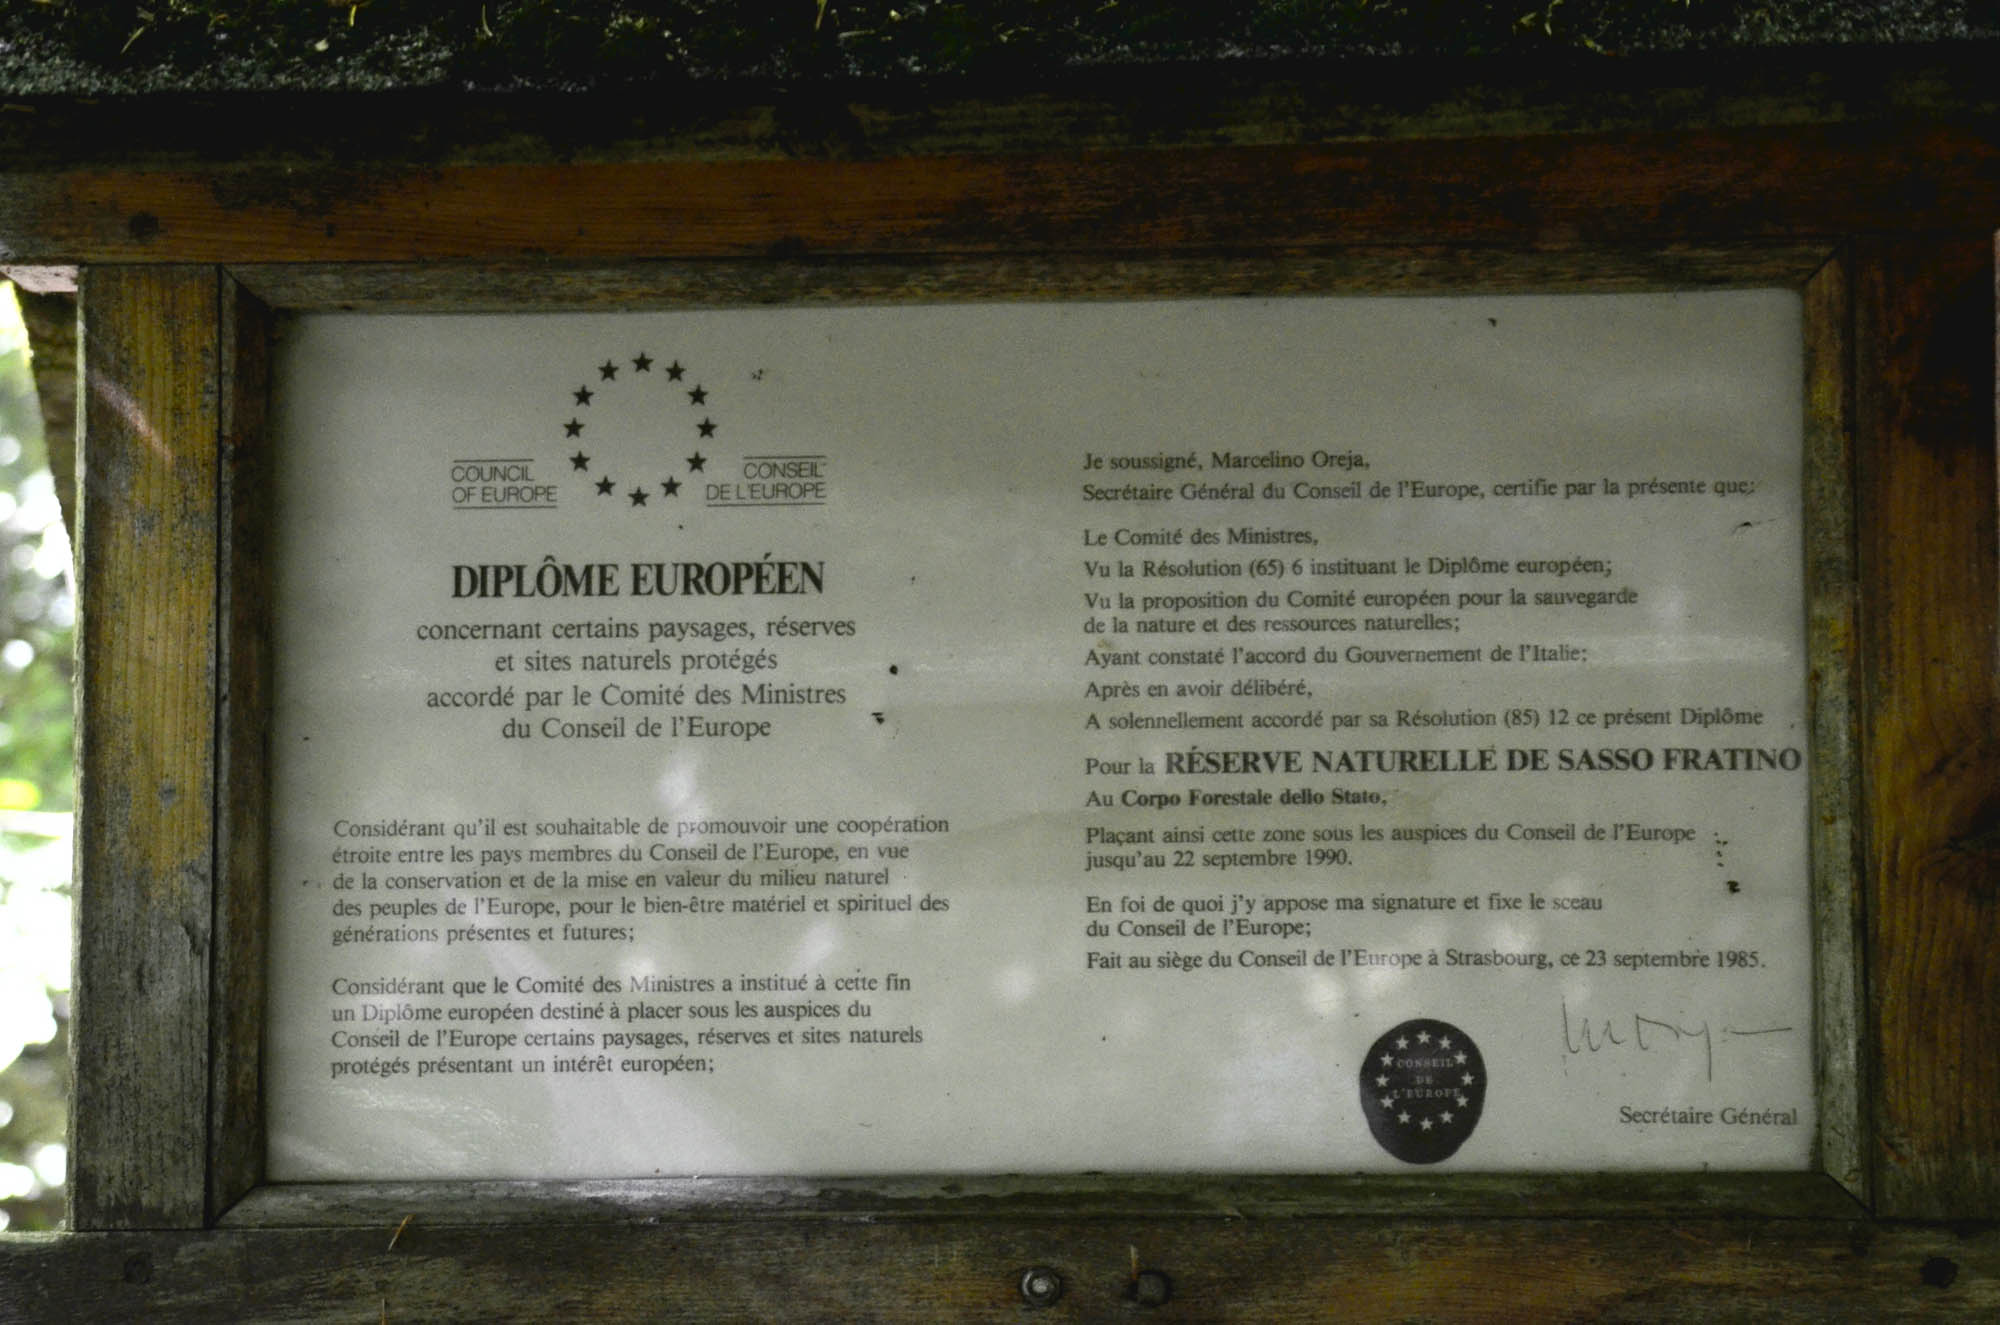 COUNCIL
OF EUROPE
CONSEIL
DE L'EUROPE
DIPLÔME EUROPÉEN
concernant certains paysages, réserves
et sites naturels protégés
accordé par le Comité des Ministres
du Conseil de l'Europe
Considérant qu'il est souhaitable de promouvoir une coopération
étroite entre les pays membres du Conseil de l'Europe, en vue
de la conservation et de la mise en valeur du milieu naturel
des peuples de l'Europe, pour le bien-être matériel et spirituel des
générations présentes et futures;
Considérant que le Comité des Ministres a institué à cette fin
un Diplôme européen destiné à placer sous les auspices du
Conseil de l'Europe certains paysages, réserves et sites naturels
protégés présentant un intérêt européen;
Je soussigné, Marcelino Oreja,
Secrétaire Général du Conseil de l'Europe, certifie par la présente que:
Le Comité des Ministres,
Vu la Résolution (65) 6 instituant le Diplôme européen;
Vu la proposition du Comité européen pour la sauvegarde
de la nature et des ressources naturelles;
Ayant constaté l'accord du Gouvernement de l'Italie;
Après en avoir délibéré,
A solennellement accordé par sa Résolution (85) 12 ce présent Diplôme
Pour la RÉSERVE NATURELLE DE SASSO FRATINO
Au Corpo Forestale dello Stato,
Plaçant ainsi cette zone sous les auspices du Conseil de l'Europe
jusqu'au 22 septembre 1990.
En foi de quoi j'y appose ma signature et fixe le sceau
du Conseil de l'Europe;
Fait au siège du Conseil de l'Europe à Strasbourg, ce 23 septembre 1985.
CONSEIL
DE
L'EUROPE
Secrétaire Général